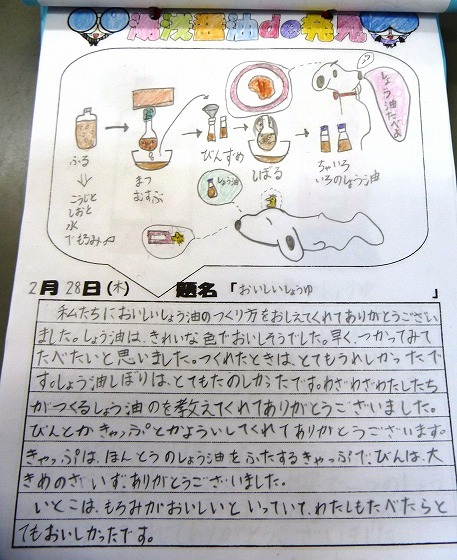 湯浅醤油de発見
しょう油たべよ
ふる
まつ
むすぶ
びんづめ
しぼる
ちゃいろ
いろのしょう油
こうじと
しおと
水
でもろみ
しょう油
2月28日(木) 題名「おいしいしょうゆ」
私たちにおいしいしょう油のつくり方をおしえてくれてありがとうござい
ました。しょう油は、きれいな色でおいしそうでした。早く、つかってみて
たべたいと思いました。つくれたときは、とてもうれしかったで
す。しょう油しぼりは、とてもたのしかったです。わざわざわたしたち
がつくるしょう油のを教えてくれてありがとうございました。
びんとかきゃっぷとかよういしてくれてありがとうございます。
きゃっぷは、ほんとうのしょう油をふたするきゃっぷで、びんは、大
きめのさいず、ありがとうございました。
いとこは、もろみがおいしいといっていて、わたしもたべたらと
てもおいしかったです。